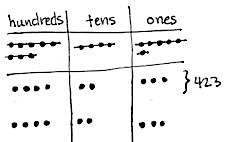 hundreds tens ones
423